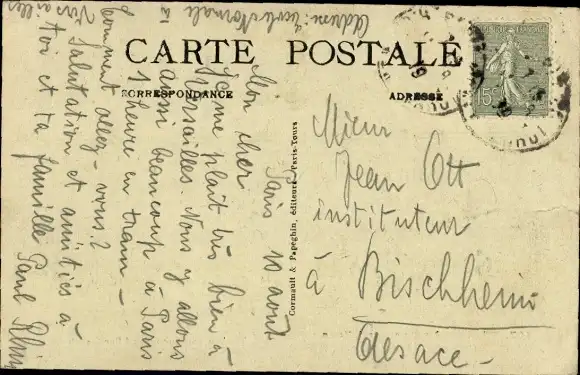 CARTE POSTALE
CORRESPONDANCE
ADRESSE
Paris 10 aout
Mon cher
Je me plaît très bien à
Versailles. Nous y allons
aussi beaucoup à Paris
1 heure en tram –
Comment allez-vous?
Salutation et amitiés à
toi et ta famille Paul
Adresse: École Normale à
Versailles
Cormault & Papeghin, éditeurs, Paris-Tours
Mieur
Jean Ott
instituteur
à Bischheim
Alsace –
15c